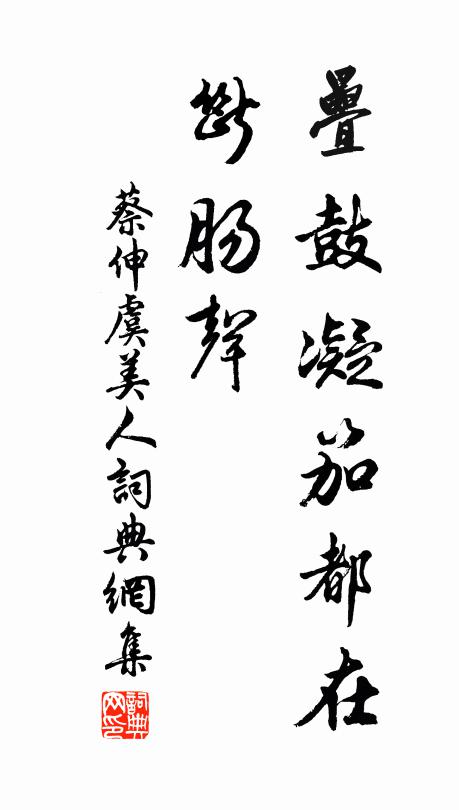 疊鼓凝笳都在
斷腸聲
蔡伸虞美人詞典網集
詞典網印